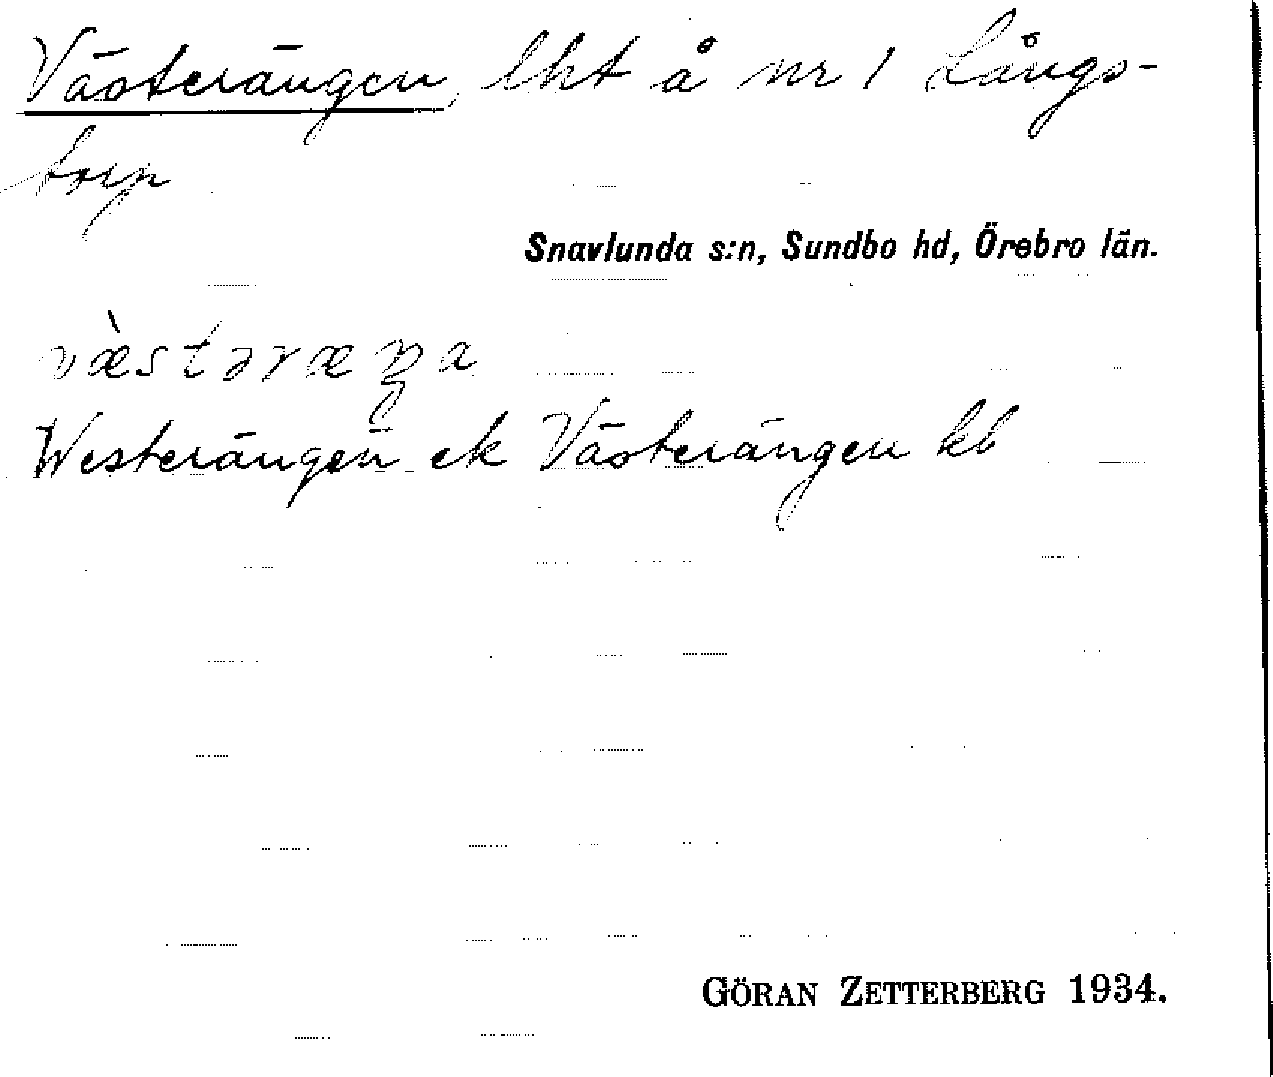 Västerängen, lht å nr 1 Långs-
torp
Snavlunda s:n, Sundbo hd, Örebro län.
væ̀stəræŋa
Westerängen ek Västerängen kb
GÖRAN ZETTERBERG 1934.